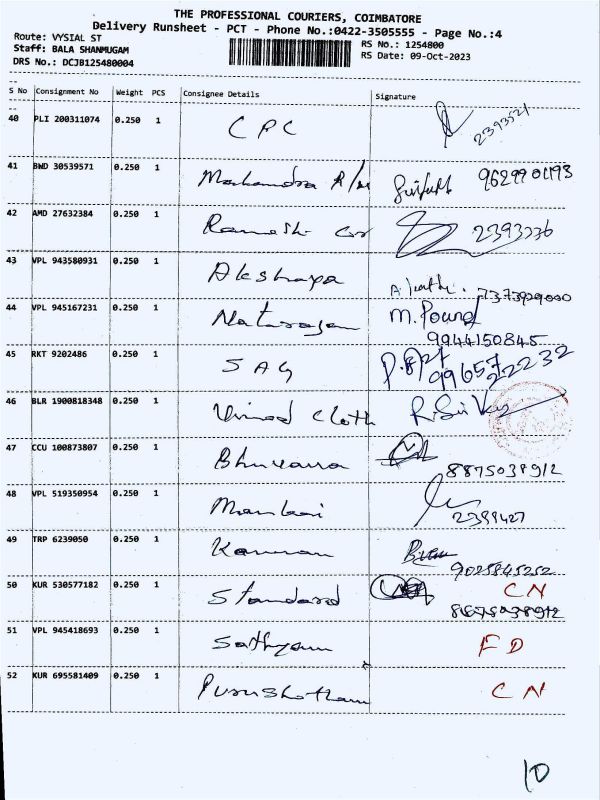 THE PROFESSIONAL COURIERS, COIMBATORE
Delivery Runsheet - PCT - Phone No.:0422-3505555 - Page No.:4
Route: VYSIAL ST
RS No.: 1254800
Staff: BALA SHANMUGAM
RS Date: 09-Oct-2023
DRS No.: DCJB125480004
S No Consignment No Weight PCS Consignee Details Signature
40 PLI 200311074 0.250 1 CPC 2393521
41 BWD 30539571 0.250 1 Mahandra 9629901193
42 AMD 27632384 0.250 1 Ramesh 2393336
43 VPL 943580931 0.250 1 Akshaya 7373929000
44 VPL 945167231 0.250 1 Natarajan M.
9944150845
45 RKT 9202486 0.250 1 SAG 9965722232
46 BLR 1900818348 0.250 1 Vinod Cloth
47 CCU 100873807 0.250 1
8875038912
48 VPL 519350954 0.250 1
2399427
49 TRP 6239050 0.250 1 Kannan
9025845252
50 KUR 530577182 0.250 1 Standard CN
51 VPL 945418693 0.250 1 Sathyam FD
52 KUR 695581409 0.250 1 Purushotham CN
10